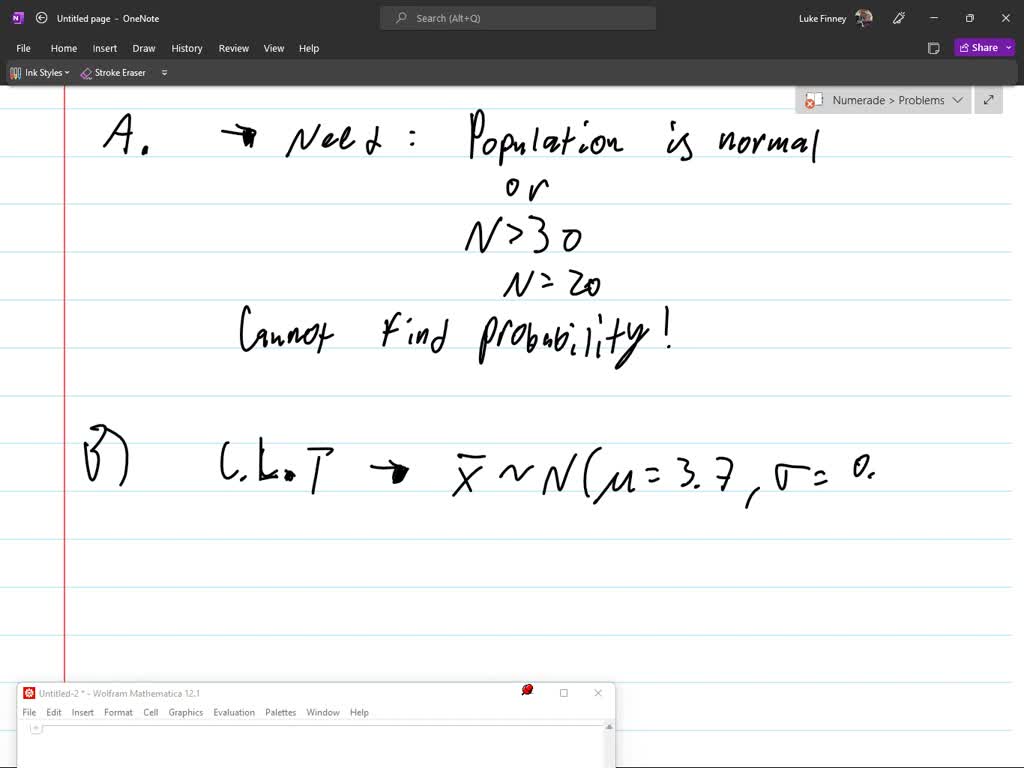 Untitled page - OneNote
Search (Alt+Q)
Luke Finney
File Home Insert Draw History Review View Help
Share
Ink Styles Stroke Eraser
Numerade > Problems
A. → Need : Population is normal
or
N > 30
N = 20
Cannot find probability!
B) C.L.T → x̄ ~ N(μ = 3.7, σ = 0.
Untitled-2 * - Wolfram Mathematica 12.1
File Edit Insert Format Cell Graphics Evaluation Palettes Window Help